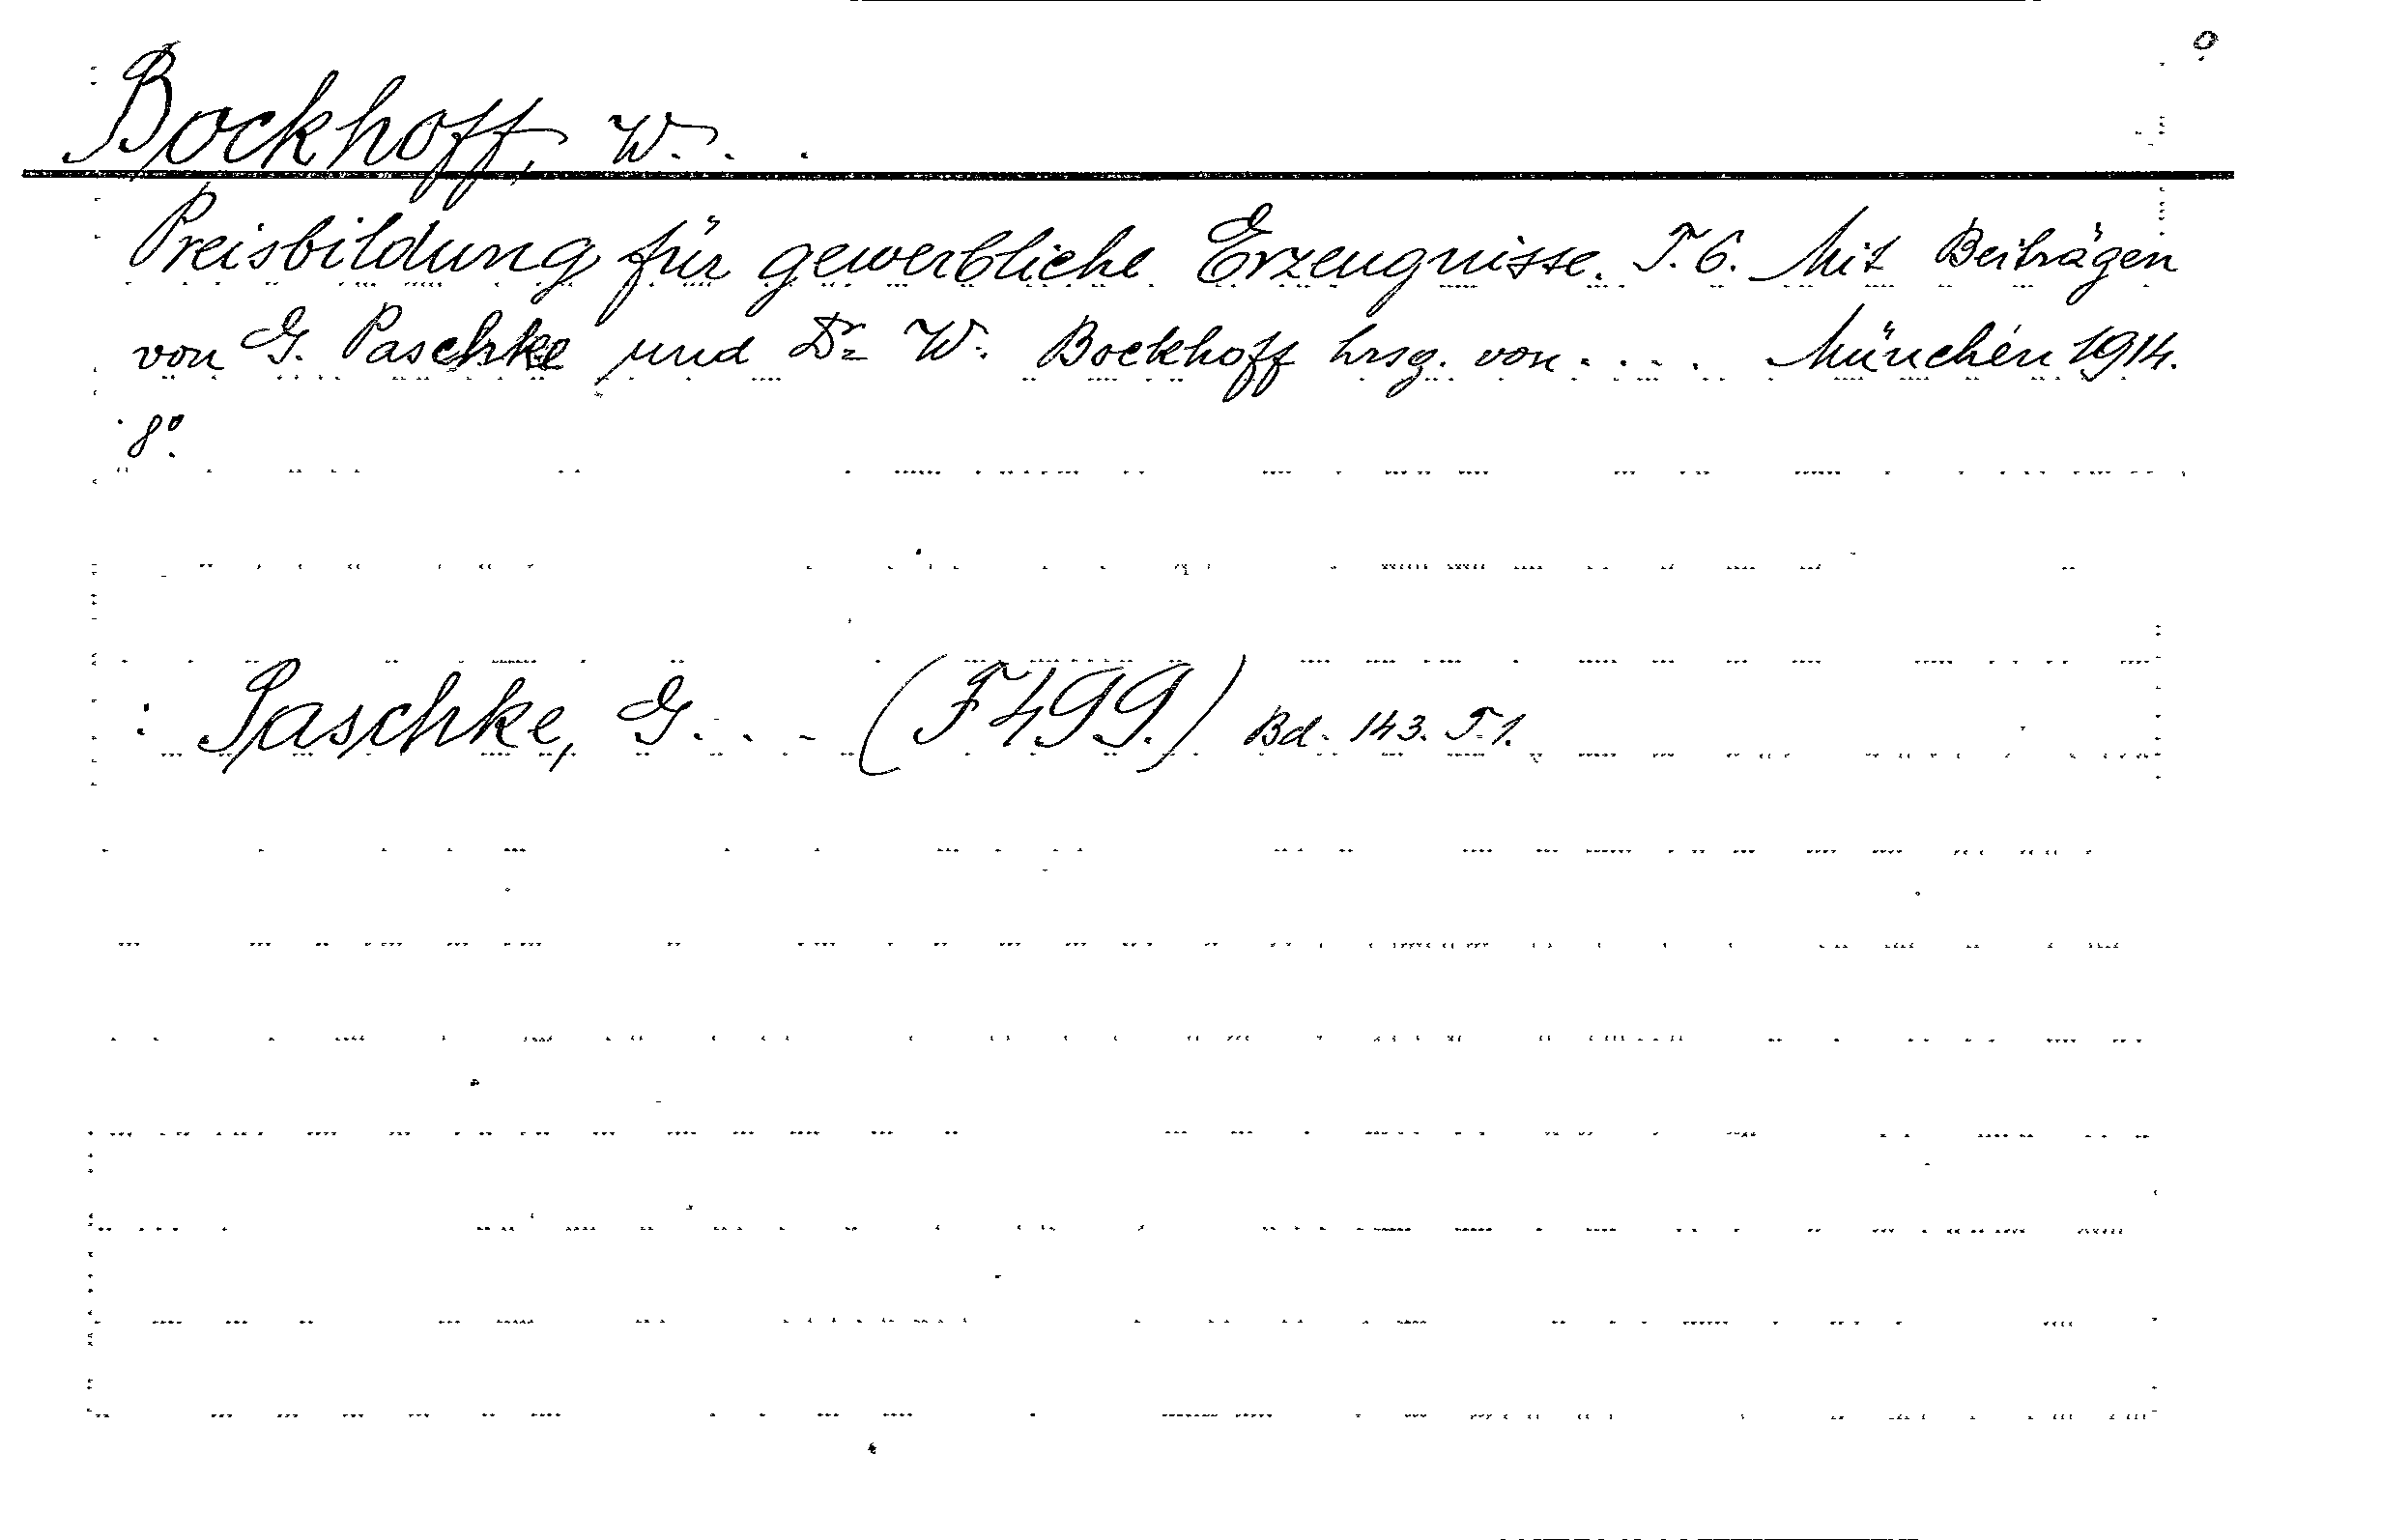 Bockhoff, W. . .
Preisbildung für gewerbliche Erzeugnisse. T. 6. Mit Beiträgen
von G. Paschke und Dr. W. Bockhoff hrsg. von . . . . München 1914.
8°.
: Paschke, G. . . - (F 499.) Bd. 143. T. 1.